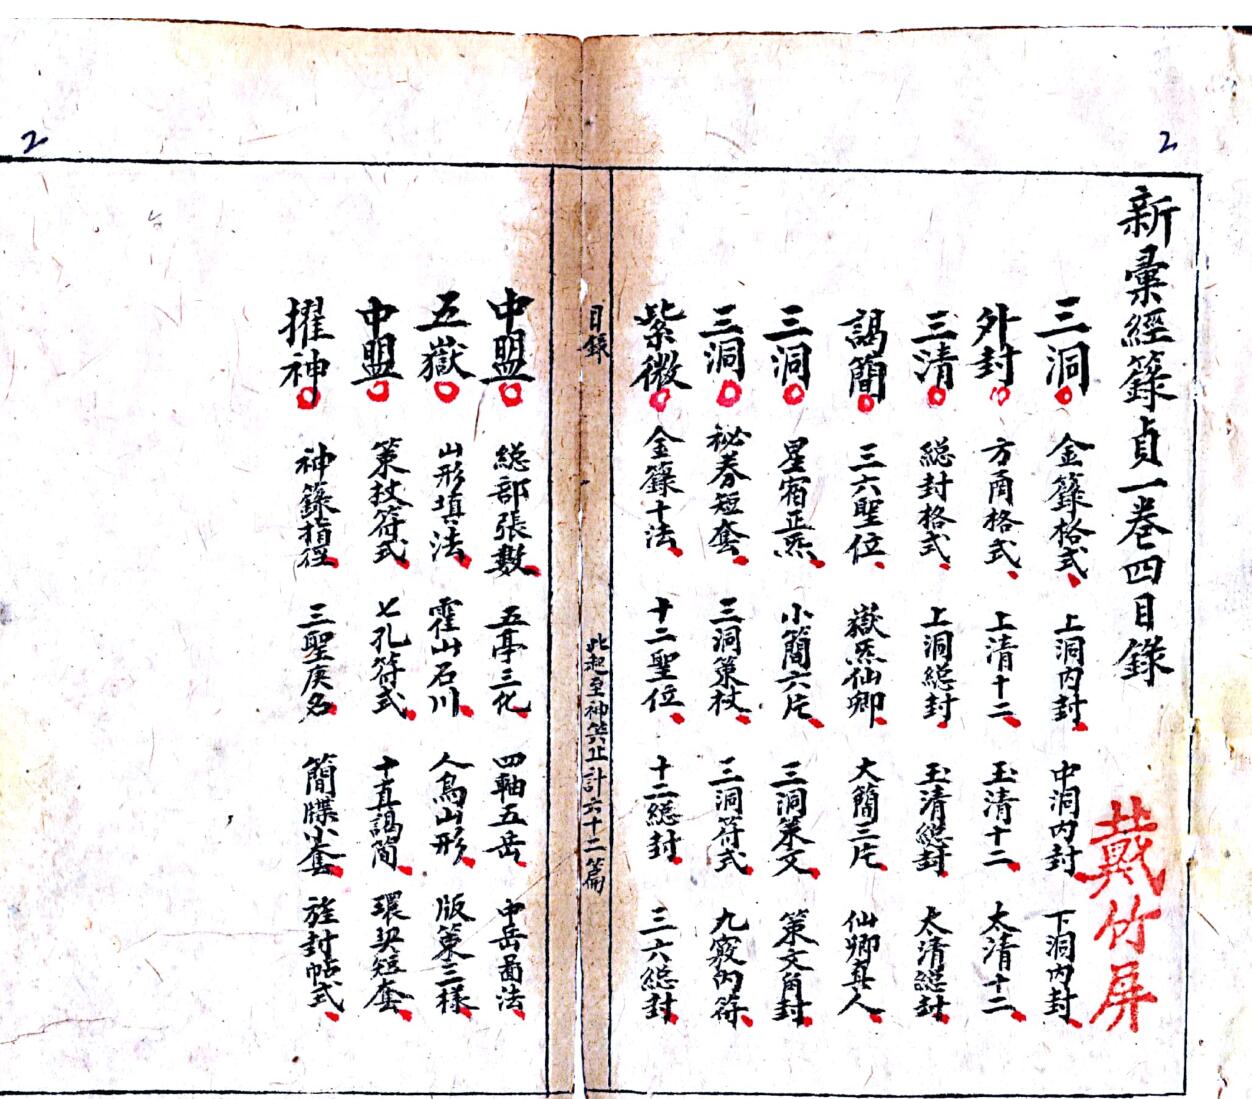 2
新彙經籙貞一卷四目錄
戴竹屏
三洞 金籙格式 上洞內封 中洞內封 下洞內封
外封 方圅格式 上清十二 玉清十二 太清十二
三清 總封格式 上洞總封 玉清總封 太清總封
謁簡 三六聖位 嶽炁仙卿 大簡三片 仙卿真人
三洞 星宿正炁 小簡六片 三洞策文 策文角封
三洞 祕券短套 三洞策杖 三洞符式 九竅內符
紫微 金籙十法 十二聖位 十二總封 三六總封
目錄 此起至神筊止計六十二篇
2
中盟 總部張數 五亭三化 四軸五岳 中岳圖法
五嶽 山形填法 霍山石川 人鳥山形 版策三樣
中盟 策杖符式 七孔符式 十直謁簡 環契短套
擢神 神籙指徑 三聖庚名 簡牒小套 旌封帖式